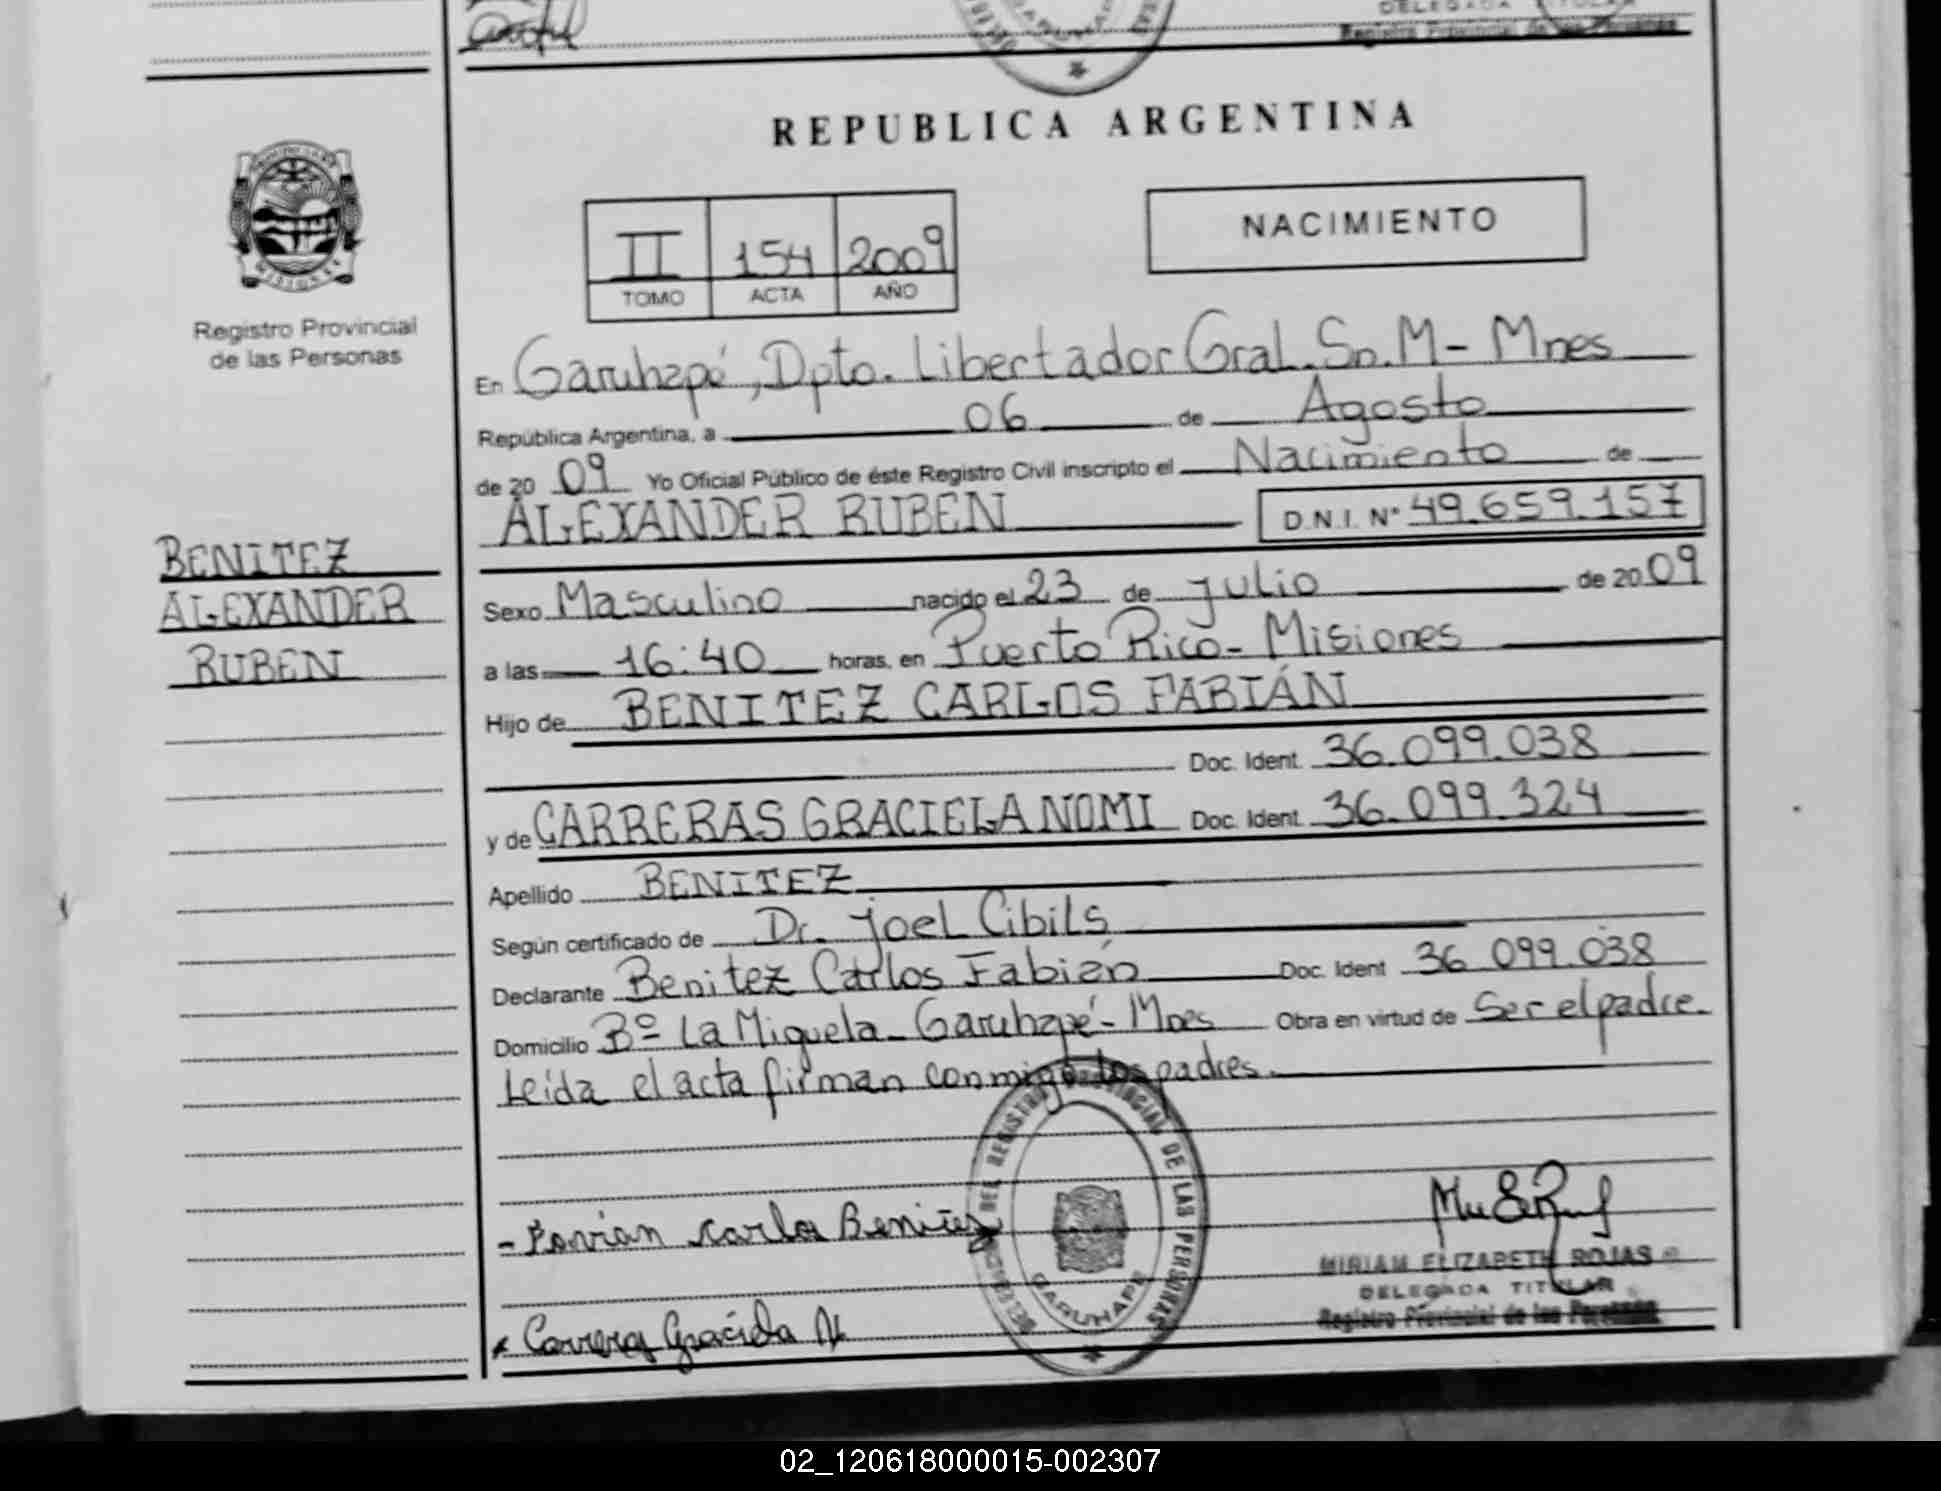 DELEGADA TITULAR
Registro Provincial de las Personas
GARUHAPE
REPUBLICA ARGENTINA
II 154 2009
TOMO ACTA AÑO
NACIMIENTO
MISIONES
Registro Provincial
de las Personas
En Garuhapé, Dpto. Libertador Gral. Sn. M - Mnes
República Argentina, a 06 de Agosto
de 2009 Yo Oficial Público de éste Registro Civil inscripto el Nacimiento de
ALEXANDER RUBEN D.N.I. Nº 49.659.157
BENITEZ
ALEXANDER
RUBEN
Sexo Masculino nacido el 23 de julio de 2009
a las 16:40 horas, en Puerto Rico - Misiones
Hijo de BENITEZ CARLOS FABIÁN
Doc. Ident. 36.099.038
y de CARRERAS GRACIELA NOMI Doc. Ident. 36.099.324
Apellido BENITEZ
Según certificado de Dr. Joel Cibils
Declarante Benitez Carlos Fabián Doc. Ident. 36.099.038
Domicilio Bº La Miguela - Garuhapé - Mnes Obra en virtud de Ser el padre.
Leída el acta firman conmigo los padres.
DEL REGISTRO PROVINCIAL DE LAS PERSONAS
GARUHAPE
- Favian Carlos Benites
MIRIAM ELIZABETH ROJAS
DELEGADA TITULAR
Registro Provincial de las Personas
Carrera Graciela N
02_120618000015-002307